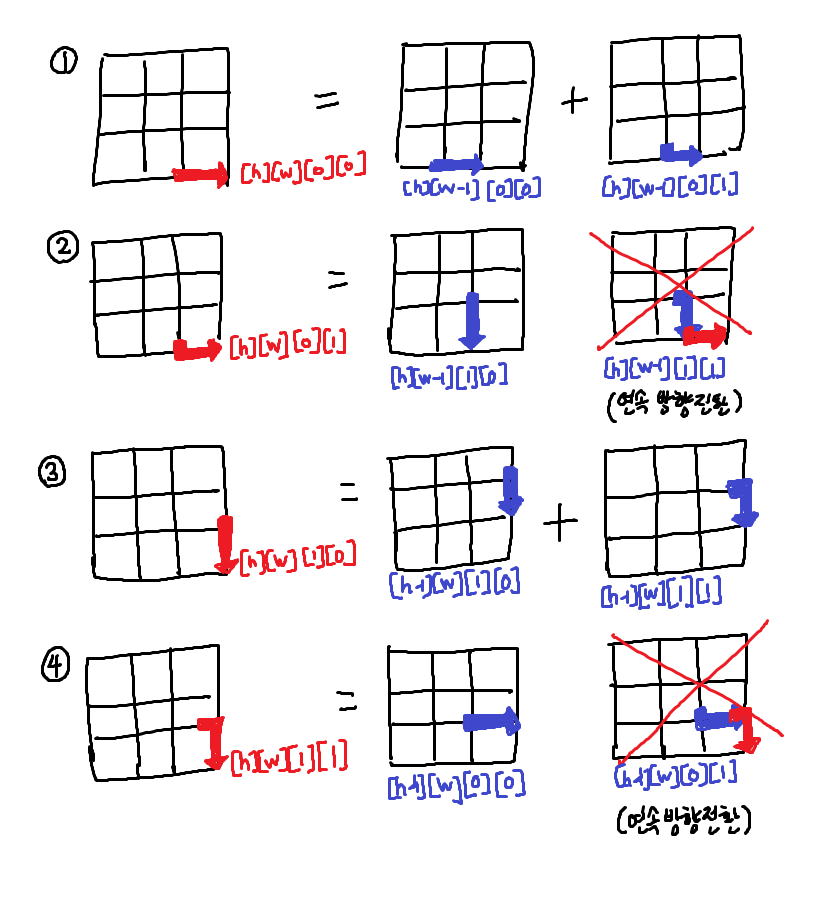 ①
=
+
[h][w][0][0]
[h][w-1][0][0]
[h][w-1][0][1]
②
=
[h][w][0][1]
[h][w-1][1][0]
[h][w-1][1][1]
(연속 방향전환)
③
=
+
[h][w][1][0]
[h-1][w][1][0]
[h-1][w][1][1]
④
=
[h][w][1][1]
[h-1][w][0][0]
[h-1][w][0][1]
(연속방향전환)